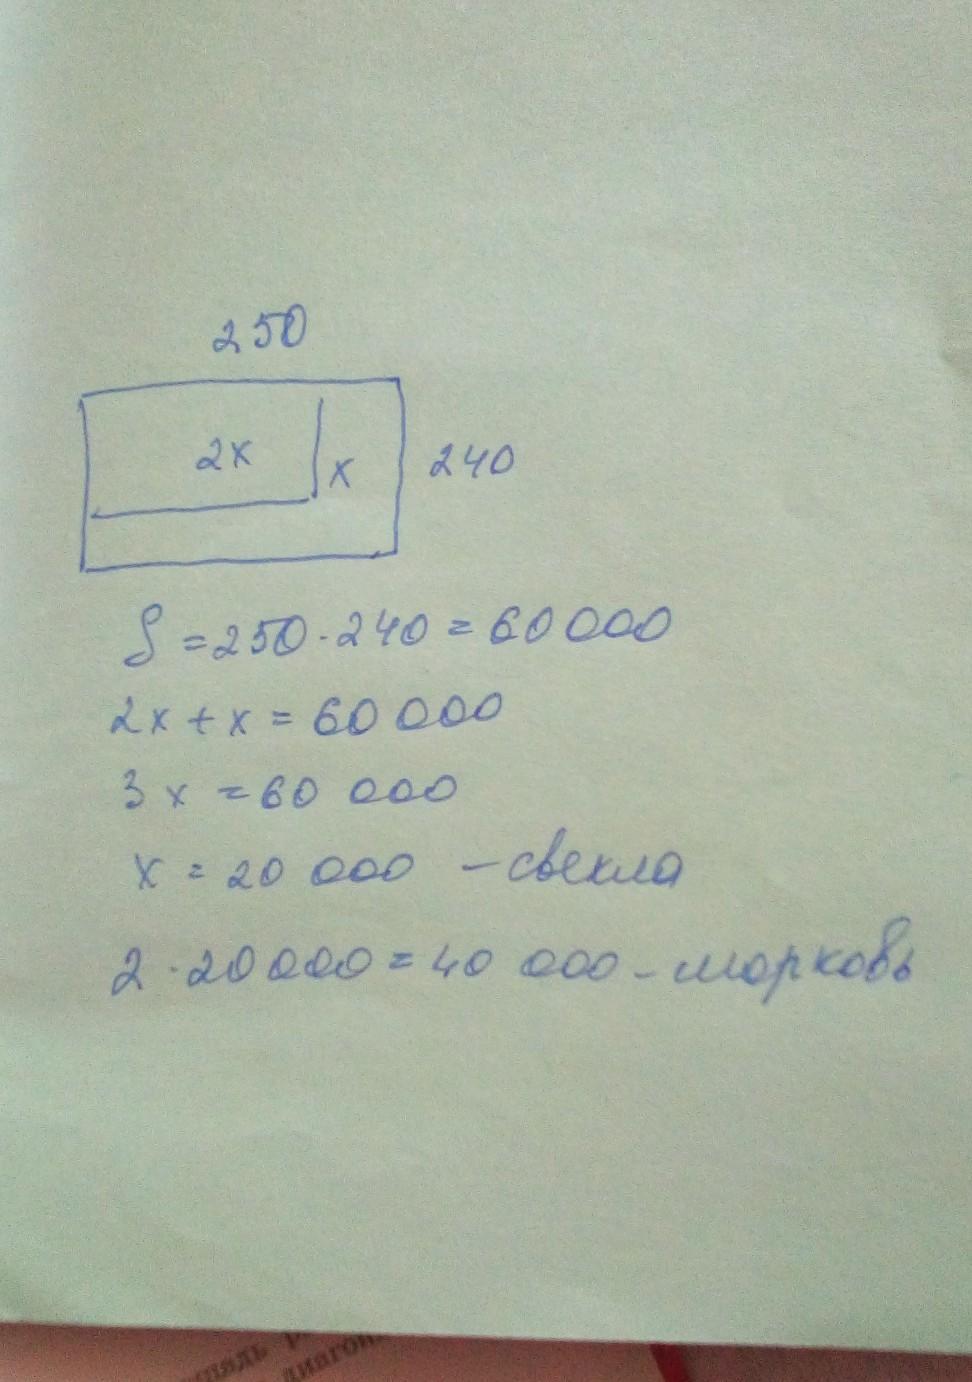 250
2x
x
240
S = 250 · 240 = 60 000
2x + x = 60 000
3x = 60 000
x = 20 000 – свекла
2 · 20 000 = 40 000 – морковь